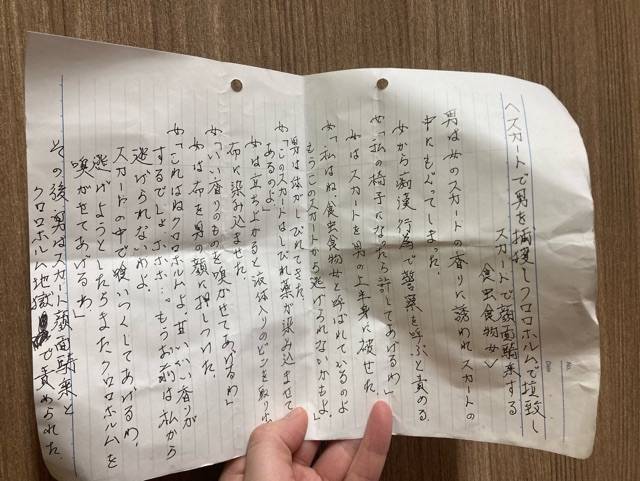 ＜スカートで男を捕獲しクロロホルムで拉致し
スカートで顔面騎乗する
食虫食物女＞
男は女のスカートの香りに誘われスカートの
中にもぐってしまった。
女から痴漢行為で警察を呼ぶと責める
女「私の椅子になったら許してあげるわ」
女はスカートを男の上半身に被せた。
女「私はね食虫食物女と呼ばれているのよ
もうこのスカートから逃げられないかもよ」
男は体がしびれてきた
女「このスカートはしびれ薬が染み込ませて
あるのよ」
女は立ち上がると液体入りのビンを取り
布に染み込ませました。
女「いい香りのものを嗅がせてあげるわ」
女は布を男の顔に押しつけた。
女「これはねクロロホルムよ、甘いいい香りが
するでしょ ホホホ…。もうお前は私から
逃げられないわよ。
スカートの中で喰いつくしてあげるわ。
逃げようとしたらまたクロロホルムを
嗅がせてあげるわ」
その後男はスカート顔面騎乗と
クロロホルム地獄で責められた。
No.
Date